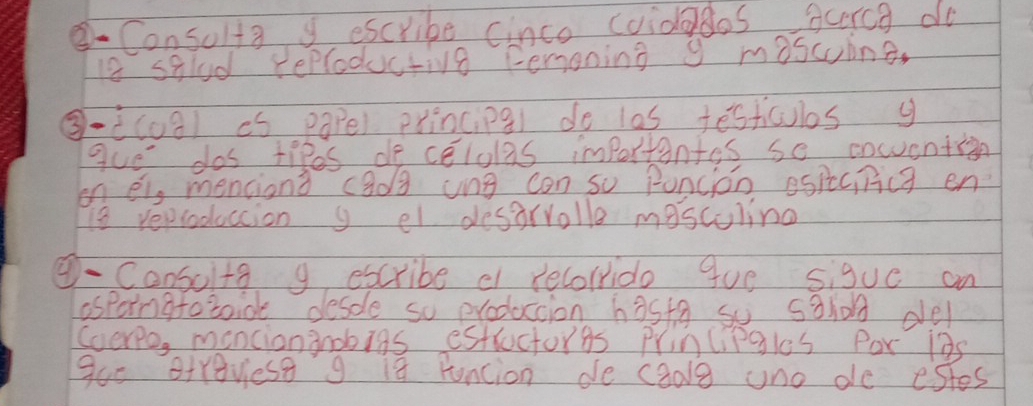 2- Consulta y escribe cinco cuidados acerca de
la salud reproductiva femenina y masculina.
3- ¿cual es papel principal de los tésticulos y
que dos tipos de células importantes se encuentran
en él, menciona cada una con su función especifica en
la reproduccion y el desarrollo masculino
4- Consulta y escribe el recorrido que sigue un
espermatozoide desde su produccion hasta su salida del
cuerpo, mencionando las estructuras principales por las
que atraviesa y la funcion de cada uno de estos